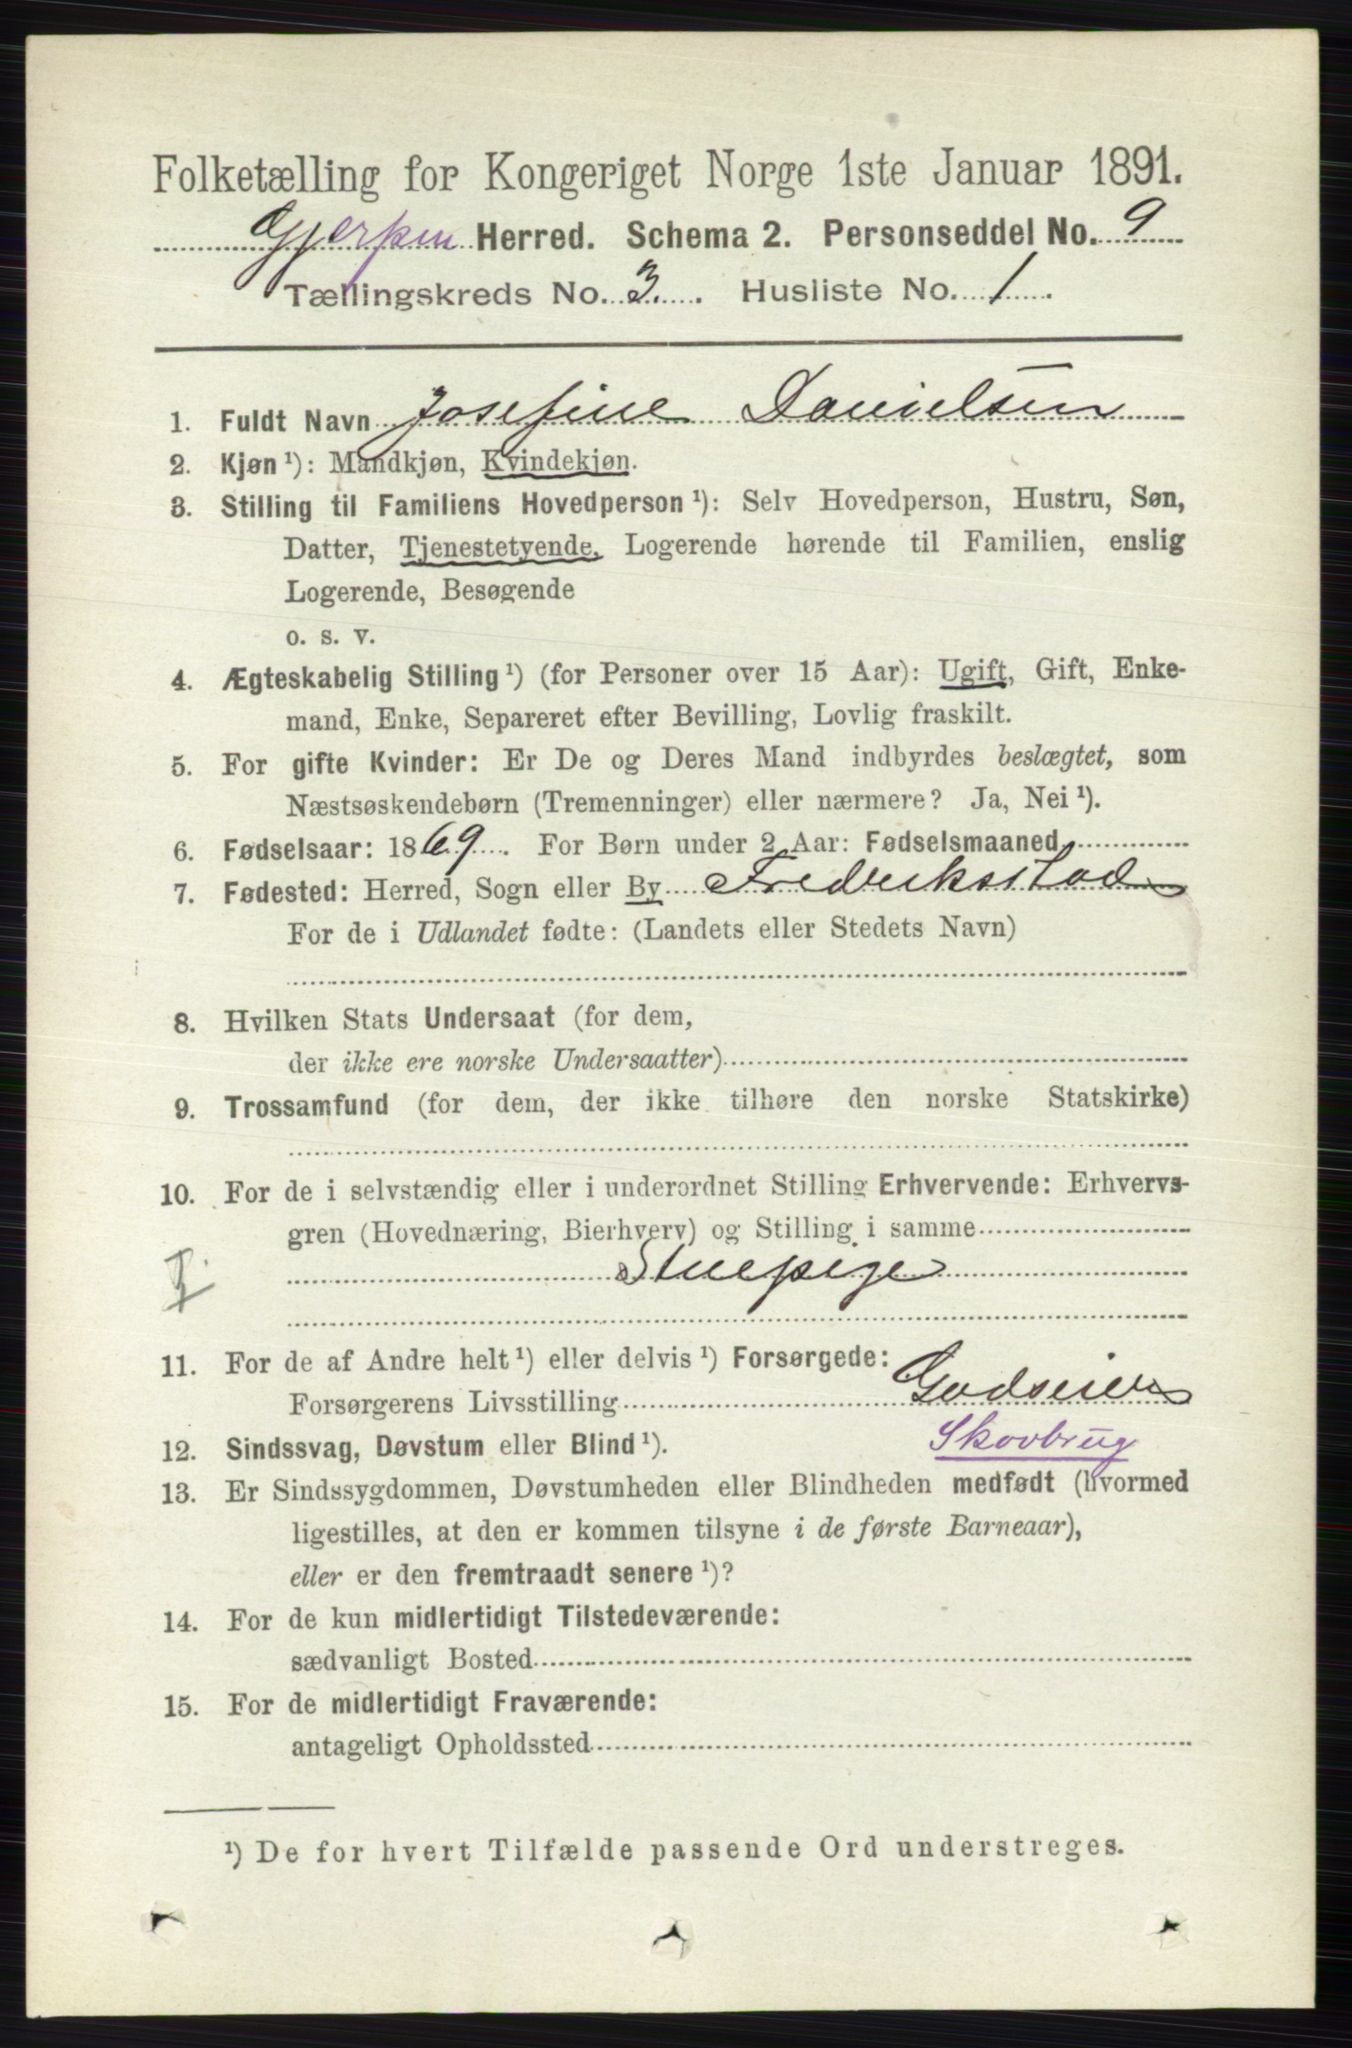 Folketælling for Kongeriget Norge 1ste Januar 1891.
Gjerpen Herred. Schema 2. Personseddel No. 9
Tællingskreds No. 3. Husliste No. 1.
1. Fuldt Navn Josefine Danielsen
2. Kjøn ¹): Mandkjøn, Kvindekjøn.
3. Stilling til Familiens Hovedperson ¹): Selv Hovedperson, Hustru, Søn,
Datter, Tjenestetyende, Logerende hørende til Familien, enslig
Logerende, Besøgende
o. s. v.
4. Ægteskabelig Stilling ¹) (for Personer over 15 Aar): Ugift, Gift, Enke-
mand, Enke, Separeret efter Bevilling, Lovlig fraskilt.
5. For gifte Kvinder: Er De og Deres Mand indbyrdes beslægtet, som
Næstsøskendebørn (Tremenninger) eller nærmere? Ja, Nei ¹).
6. Fødselsaar: 1869. For Børn under 2 Aar: Fødselsmaaned
7. Fødested: Herred, Sogn eller By Fredriksstad
For de i Udlandet fødte: (Landets eller Stedets Navn)
8. Hvilken Stats Undersaat (for dem,
der ikke ere norske Undersaatter)
9. Trossamfund (for dem, der ikke tilhøre den norske Statskirke)
10. For de i selvstændig eller i underordnet Stilling Erhvervende: Erhvervs-
gren (Hovednæring, Bierhverv) og Stilling i samme
Stuepige
11. For de af Andre helt ¹) eller delvis ¹) Forsørgede:
Forsørgerens Livsstilling Godseier
Skovbrug
12. Sindssvag, Døvstum eller Blind ¹).
13. Er Sindssygdommen, Døvstumheden eller Blindheden medfødt (hvormed
ligestilles, at den er kommen tilsyne i de første Barneaar),
eller er den fremtraadt senere ¹)?
14. For de kun midlertidigt Tilstedeværende:
sædvanligt Bosted
15. For de midlertidigt Fraværende:
antageligt Opholdssted
¹) De for hvert Tilfælde passende Ord understreges.